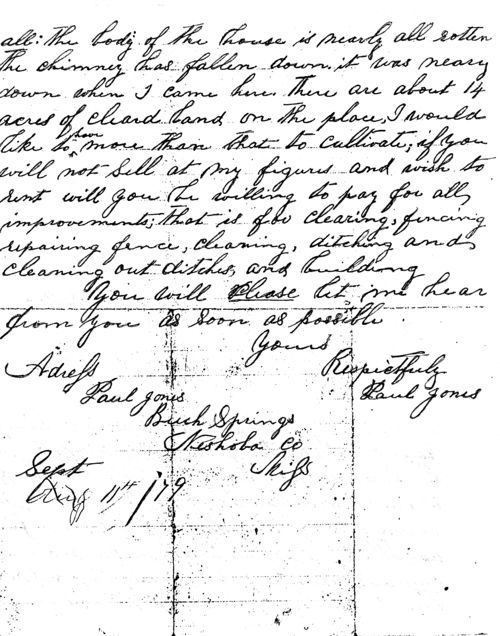 all: the body of the house is nearly all rotten
the chimney has fallen down. it was neary
down when I came here. there are about 14
acres of cleard land on the place, I would
like to have more than that to cultivate; if you
will not sell at my figures and wish to
rent will you be willing to pay for all
improvements; that is for clearing, fencing
repairing fence, cleaning, ditching and
cleaning out ditches, and building
You will please let me hear
from you as soon as possible
Yours
Adress Respictfuly
Paul Jones Paul Jones
Springs
Neshoba Co
Miss
Sept
Aug 11th /79